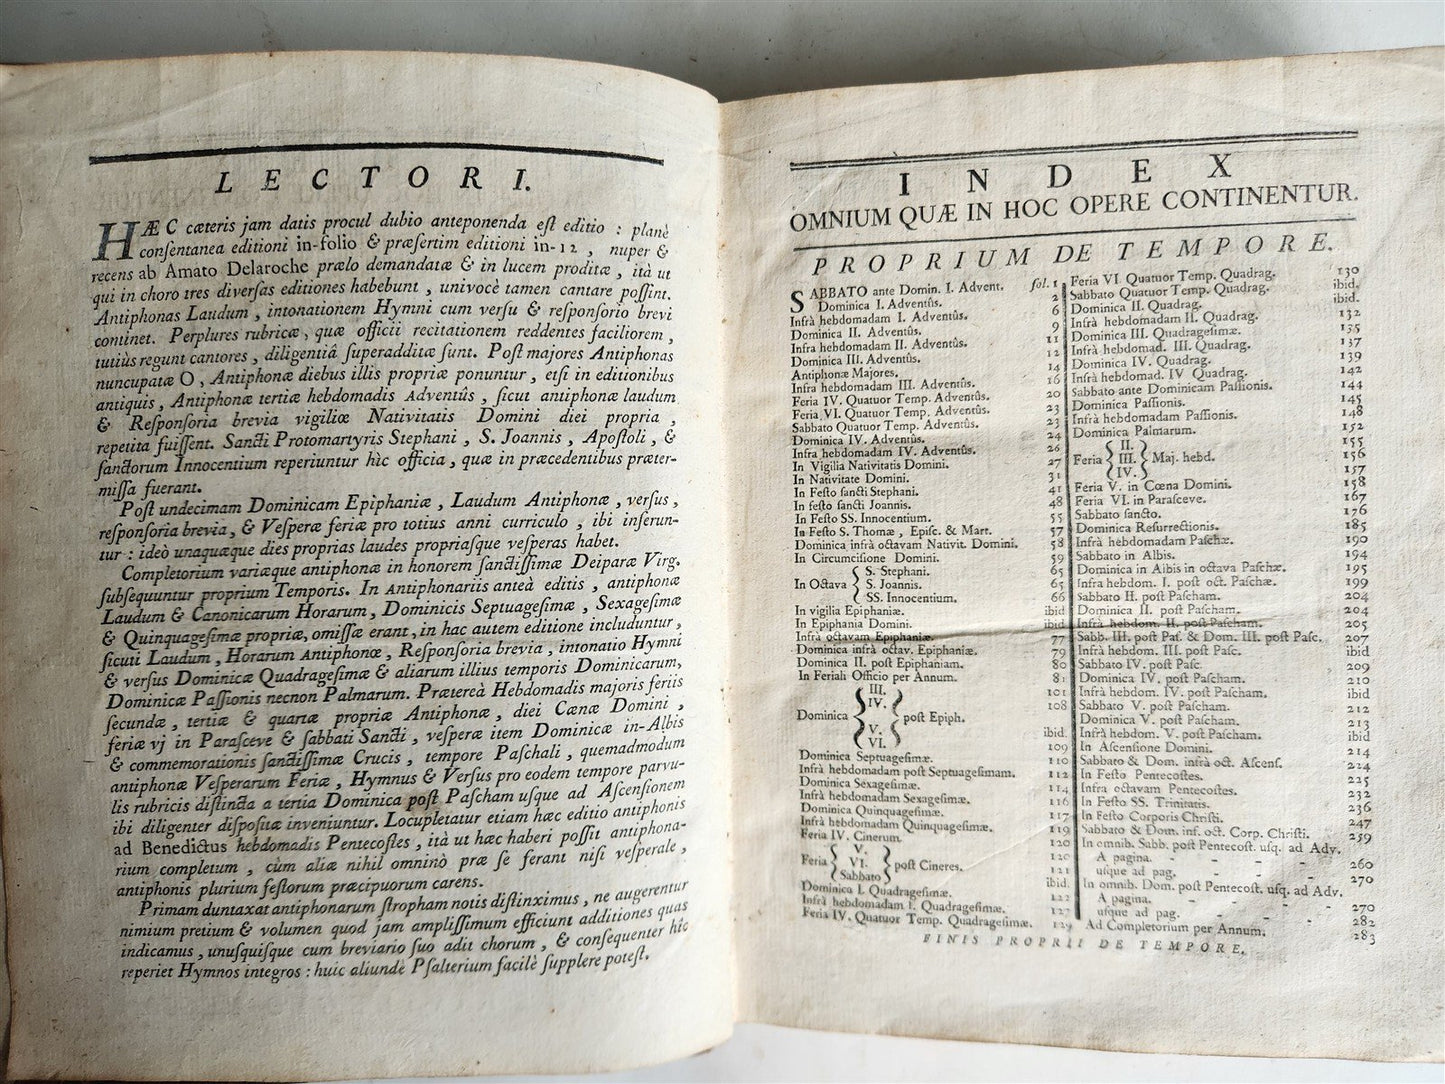 LECTORI.
HÆC cæteris jam datis procul dubio anteponenda eſt editio : planè
conſentanea editioni in-folio & præſertim editioni in-12 , nuper &
recens ab Amato Delaroche prælo demandatæ & in lucem proditæ , ità ut
qui in choro tres diverſas editiones habebunt , univocè tamen cantare poſſint.
Antiphonas Laudum , intonationem Hymni cum verſu & reſponſorio brevi
continet. Perplures rubricæ , quæ officii recitationem reddentes faciliorem ,
tutiùs regunt cantores , diligentiâ ſuperadditæ ſunt. Poſt majores Antiphonas
nuncupatæ O , Antiphonæ diebus illis propriæ ponuntur , etſi in editionibus
antiquis , Antiphonæ tertiæ hebdomadis Adventûs , ſicut antiphonæ laudum
& Reſponſoria brevia vigiliæ Nativitatis Domini diei propria ,
repetita fuiſſent. Sancti Protomartyris Stephani , S. Joannis , Apoſtoli , &
ſanctorum Innocentium reperiuntur hìc officia , quæ in præcedentibus præter-
miſſa fuerant.
Poſt undecimam Dominicam Epiphaniæ , Laudum Antiphonæ , verſus ,
reſponſoria brevia , & Veſperæ feriæ pro totius anni curriculo , ibi inſerun-
tur : ideò unaquæque dies proprias laudes propriaſque veſperas habet.
Completorium variæque antiphonæ in honorem ſanctiſſimæ Deiparæ Virg.
ſubſequuntur proprium Temporis. In Antiphonariis anteà editis , antiphonæ
Laudum & Canonicarum Horarum , Dominicis Septuageſimæ , Sexageſimæ
& Quinquageſimæ propriæ, omiſſæ erant, in hac autem editione includuntur,
ſicuti Laudum , Horarum Antiphonæ , Reſponſoria brevia , intonatio Hymni
& verſus Dominicæ Quadrageſimæ & aliarum illius temporis Dominicarum,
Dominicæ Paſſionis necnon Palmarum. Prætereà Hebdomadis majoris feriis
ſecundæ , tertiæ & quartæ propriæ Antiphonæ , diei Cœnæ Domini ,
feriæ vj in Paraſceve & ſabbati Sancti , veſperæ item Dominicæ in-Albis
& commemorationis ſanctiſſimæ Crucis , tempore Paſchali , quemadmodum
antiphonæ Veſperarum Feriæ , Hymnus & Verſus pro eodem tempore parvu-
lis rubricis diſtincta a tertia Dominica poſt Paſcham uſque ad Aſcenſionem
ibi diligenter diſpoſitæ inveniuntur. Locupletatur etiam hæc editio antiphonis
ad Benedictus hebdomadis Pentecoſtes , ità ut hæc haberi poſſit antiphona-
rium completum , cùm aliæ nihil omninò præ ſe ferant niſi veſperale ,
antiphonis plurium feſtorum præcipuorum carens.
Primam duntaxat antiphonarum ſtropham notis diſtinximus , ne augerentur
nimium pretium & volumen quod jam ampliſſimum efficiunt additiones quas
indicamus , unuſquiſque cum breviario ſuo adit chorum , & conſequenter hîc
reperiet Hymnos integros : huic aliundè Pſalterium facilè ſupplere poteſt.
INDEX
OMNIUM QUÆ IN HOC OPERE CONTINENTUR.
PROPRIUM DE TEMPORE.
SABBATO ante Domin. I. Advent. fol. 1
Dominica I. Adventûs. 2
Infrà hebdomadam I. Adventûs. 6
Dominica II. Adventûs. 9
Infra hebdomadam II. Adventûs. 11
Dominica III. Adventûs. 12
Antiphonæ Majores. 14
Infra hebdomadam III. Adventûs. 16
Feria IV. Quatuor Temp. Adventûs. 20
Feria VI. Quatuor Temp. Adventûs. 23
Sabbato Quatuor Temp. Adventûs. 23
Dominica IV. Adventûs. 24
Infra hebdomadam IV. Adventûs. 26
In Vigilia Nativitatis Domini. 27
In Nativitate Domini. 31
In Feſto ſancti Stephani. 41
In feſto ſancti Joannis. 48
In Feſto SS. Innocentium. 55
In Feſto S. Thomæ , Epiſc. & Mart. 57
Dominica infrà octavam Nativit. Domini. 58
In Circumciſione Domini. 59
In Octava { S. Stephani. 65
S. Joannis. 65
SS. Innocentium. 66
In vigilia Epiphaniæ. ibid
In Epiphania Domini. ibid
Infrà octavam Epiphaniæ. 77
Dominica infrà octav. Epiphaniæ. 79
Dominica II. poſt Epiphaniam. 80
In Feriali Officio per Annum. 81
Dominica { III. 101
IV. 108
V.
VI. } poſt Epiph. ibid.
Dominica Septuageſimæ. 109
Infrà hebdomadam poſt Septuageſimam. 110
Dominica Sexageſimæ. 112
Infrà hebdomadam Sexageſimæ. 114
Dominica Quinquageſimæ. 116
Infrà hebdomadam Quinquageſimæ. 117
Feria IV. Cinerum. 119
Feria { V. 120
VI. } poſt Cineres. 120
Sabbato 121
Dominica I. Quadrageſimæ. ibid.
Infrà hebdomadam I. Quadrageſimæ. 122
Feria IV. Quatuor Temp. Quadrageſimæ. 129
Feria VI. Quatuor Temp. Quadrag. 130
Sabbato Quatuor Temp. Quadrag. ibid.
Dominica II. Quadrag. ibid.
Infrà hebdomadam II. Quadrag. 132
Dominica III. Quadrageſimæ. 135
Infrà hebdomad. III. Quadrag. 137
Dominica IV. Quadrag. 139
Infrà hebdomad. IV Quadrag. 142
Sabbato ante Dominicam Paſſionis. 144
Dominica Paſſionis. 145
Infrà hebdomadam Paſſionis. 148
Dominica Palmarum. 152
Feria { II. 155
III. } Maj. hebd. 156
IV. 157
Feria V. in Cœna Domini. 158
Feria VI. in Paraſceve. 167
Sabbato ſancto. 176
Dominica Reſurrectionis. 185
Infrà hebdomadam Paſchæ. 190
Sabbato in Albis. 194
Dominica in Albis in octava Paſchæ. 195
Infra hebdom. I. poſt oct. Paſchæ. 199
Sabbato II. poſt Paſcham. 204
Dominica II. poſt Paſcham. 204
Infrà hebdom. II. poſt Paſcham. 205
Sabb. III. poſt Paſ. & Dom. III. poſt Paſc. 207
Infrà hebdom. III. poſt Paſch. ibid
Sabbato IV. poſt Paſc. 209
Dominica IV. poſt Paſcham. 210
Infrà hebdom. IV. poſt Paſcham. ibid
Sabbato V. poſt Paſcham. 212
Dominica V. poſt Paſcham. 213
Infrà hebdom. V. poſt Paſcham. ibid
In Aſcenſione Domini. 214
Sabbato & Dom. infrà oct. Aſcenſ. 224
In Feſto Pentecoſtes. 225
Infra octavam Pentecoſtes. 232
In Feſto SS. Trinitatis. 236
In Feſto Corporis Chriſti. 247
Sabbato & Dom. inf. oct. Corp. Chriſti. 259
In omnib. Sabb. poſt Pentecoſt. uſq. ad Adv.
A pagina. - - - 260
uſque ad pag. - - - 270
In omnib. Dom. poſt Pentecoſt. uſq. ad Adv.
A pagina. - - - 270
uſque ad pag. - - - 282
Ad Completorium per Annum. 283
FINIS PROPRII DE TEMPORE.